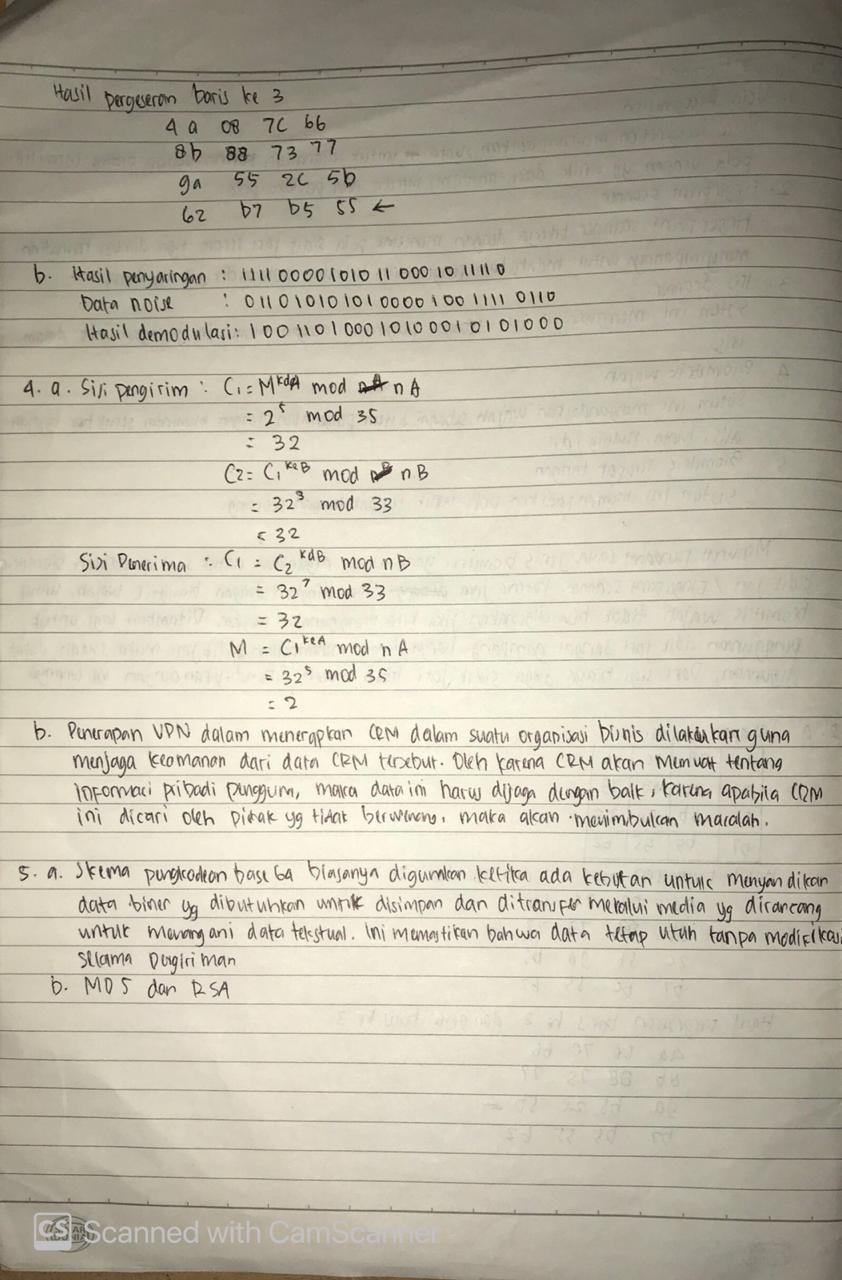 Hasil pergeseran baris ke 3
4a 08 7c 66
8b 88 73 77
9a 55 2c 5b
62 b7 b5 55 ←
b. Hasil penyaringan : 1111 00001010 11 000 10 11110
Data noise : 011 01010 1010 0000 1 00 1111 0110
Hasil demodulasi : 1 00 1101 0001010 0010 10 1000
4. a. Sisi pengirim : C1 = M^kdA mod nA
= 2^5 mod 35
= 32
C2 = C1^keB mod nB
= 32^3 mod 33
= 32
Sisi Penerima : C1 = C2^kdB mod nB
= 32^7 mod 33
= 32
M = C1^keA mod nA
= 32^5 mod 35
= 2
b. Penerapan VPN dalam menerapkan CRM dalam suatu organisasi bisnis dilakukan guna
menjaga keamanan dari data CRM tersebut. Oleh karena CRM akan memuat tentang
informasi pribadi pengguna, maka data ini harus dijaga dengan baik, karena apabila CRM
ini dicari oleh pihak yg tidak berwenang, maka akan menimbulkan masalah.
5. a. Skema pengkodean base 64 biasanya digunakan ketika ada kebutan untuk menyandikan
data biner yg dibutuhkan untik disimpan dan ditransfer melalui media yg dirancang
untuk menangani data tekstual. Ini memastikan bahwa data tetap utuh tanpa modifikasi
selama pengiriman
b. MD5 dan RSA
CS Scanned with CamScanner